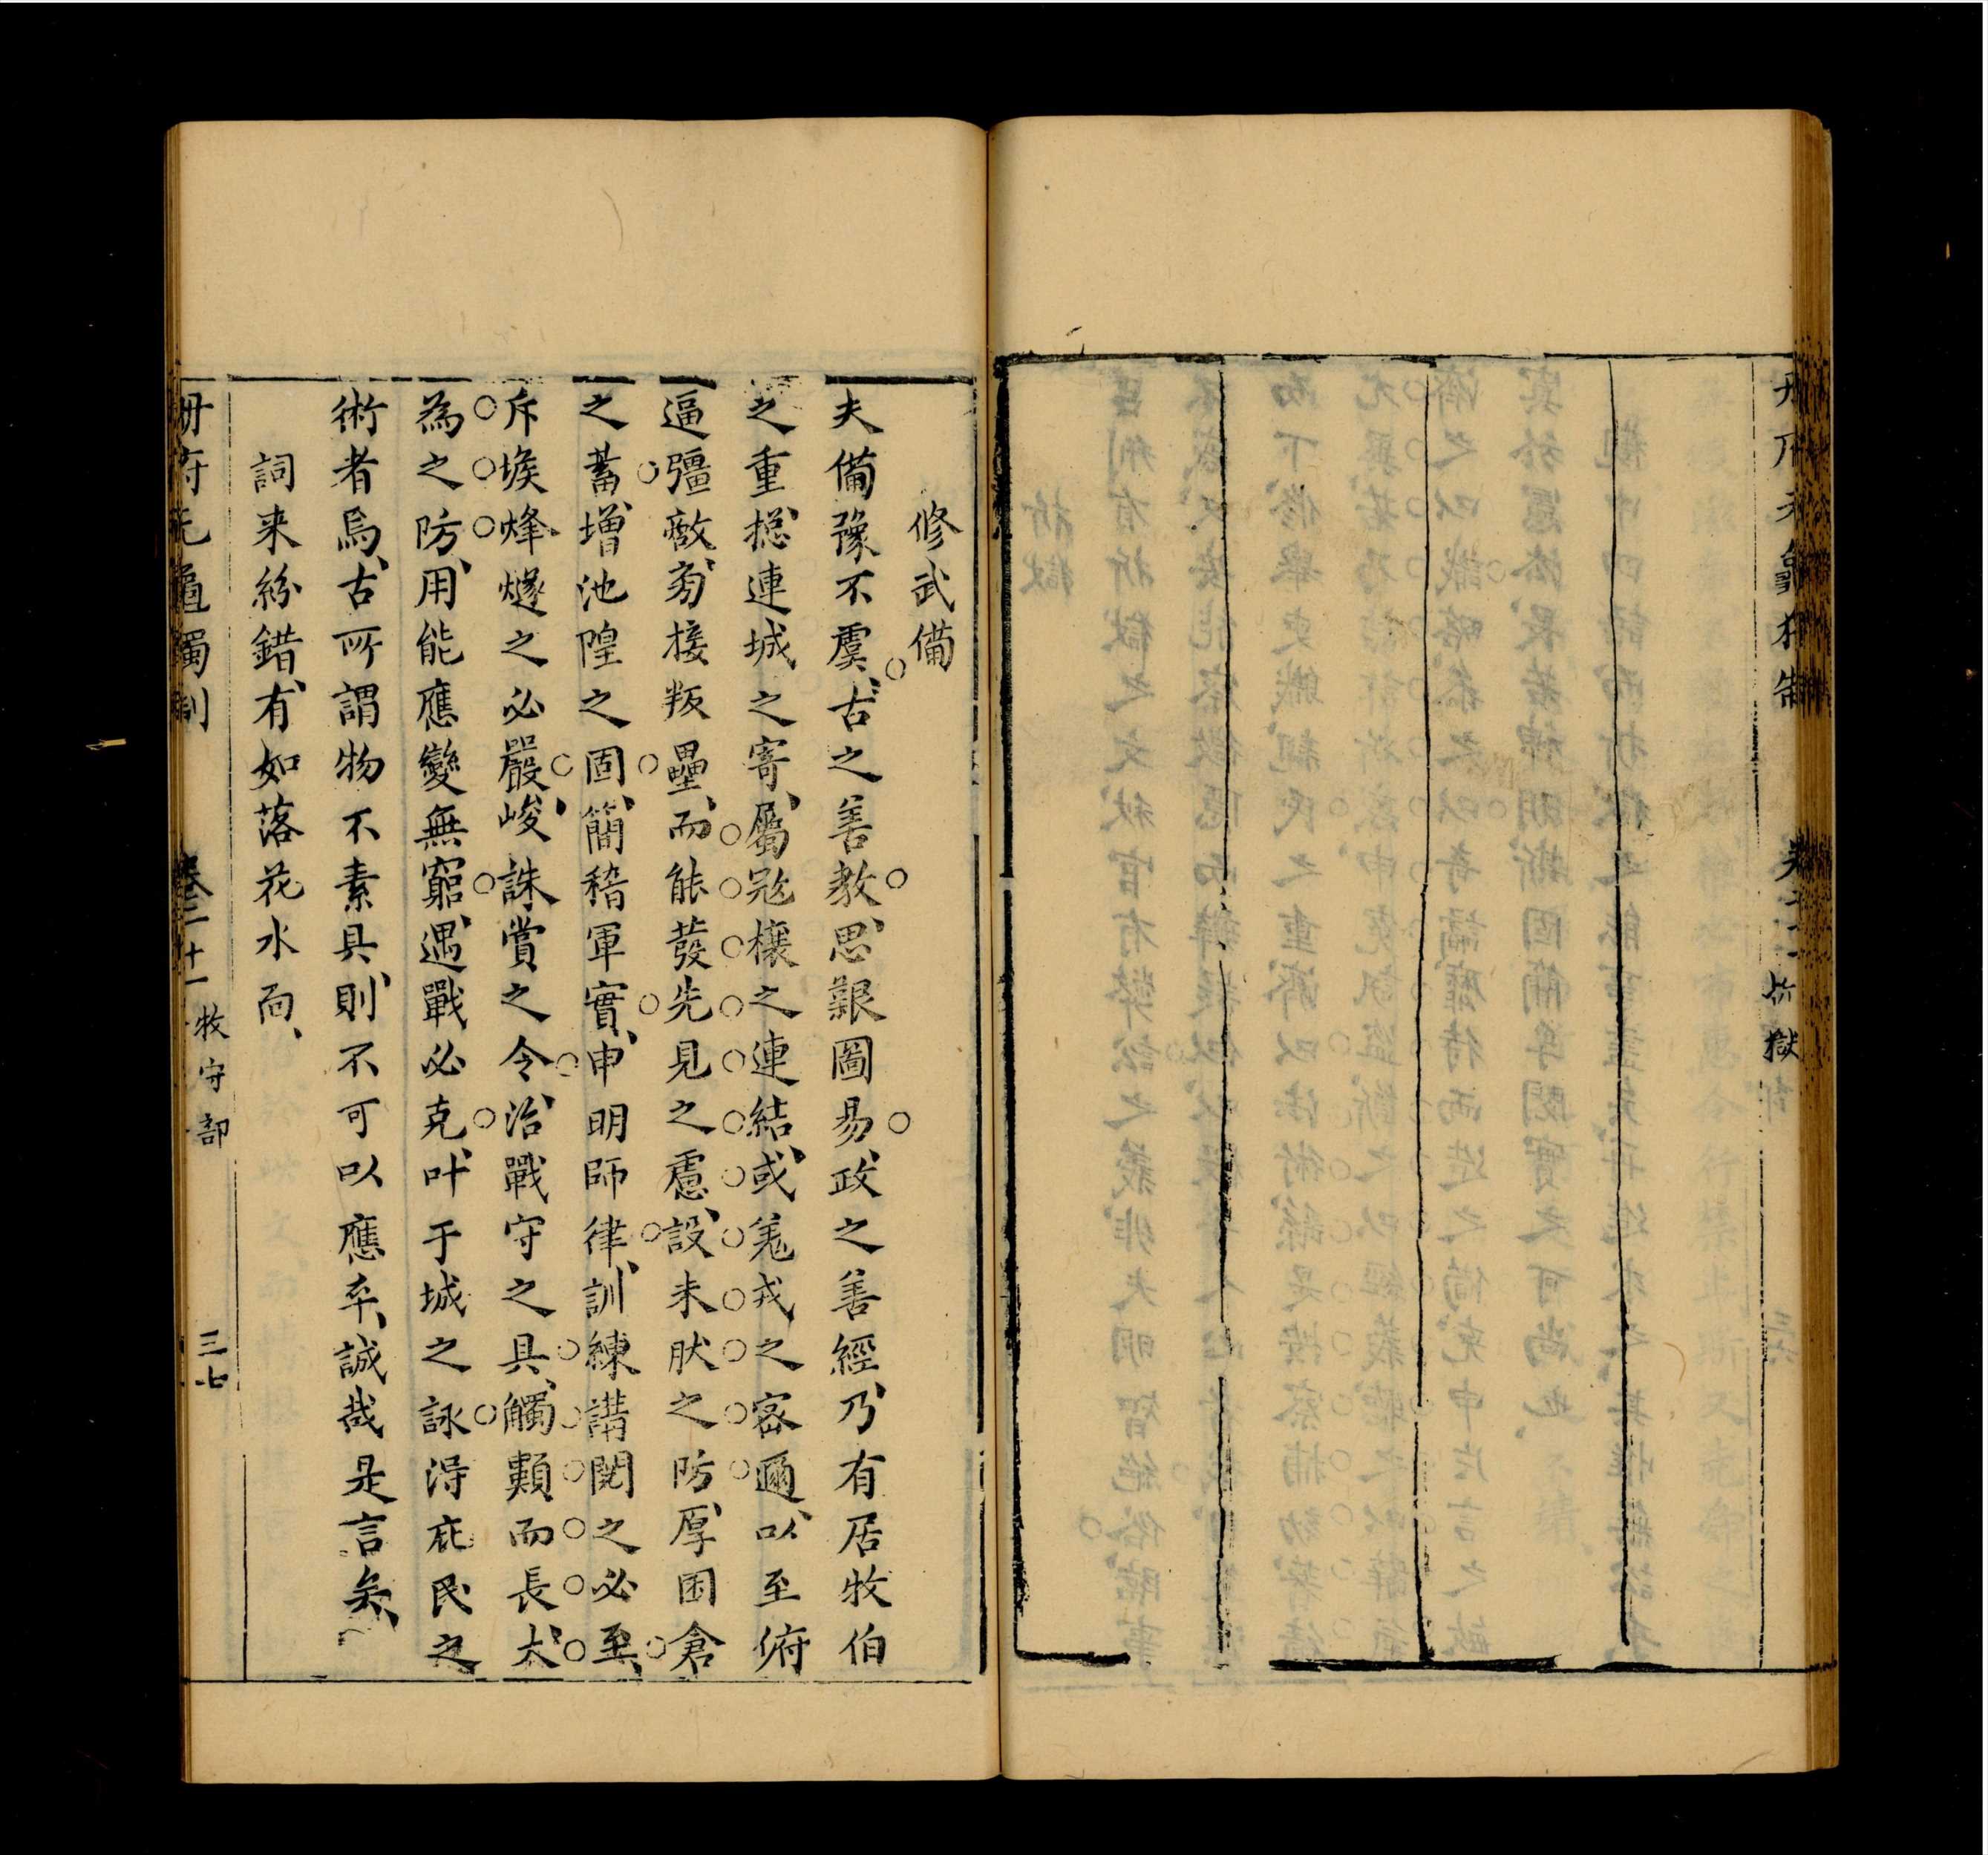 折獄
修武備
夫備豫不虞、古之善教、思艱圖易、政之善經、乃有居牧伯
之重、揔連城之寄、屬寇欃之連結、或羗戎之密邇、以至俯
逼彊敵、旁接叛壘、而能發先見之慮、設未肰之防、厚囷倉
之蓄、增池隍之固、簡稽軍實、申明師律、訓練講閱之必至、
斥堠烽燧之必嚴峻、誅賞之令、治戰守之具、觸類而長、大
為之防、用能應變無窮、遇戰必克、叶于城之詠、得庇民之
術者焉、古所謂物不素具、則不可以應卒、誠哉是言矣、
詞来紛錯、有如落花水面、
冊府元龜獨制
卷二十一
牧守部
三七